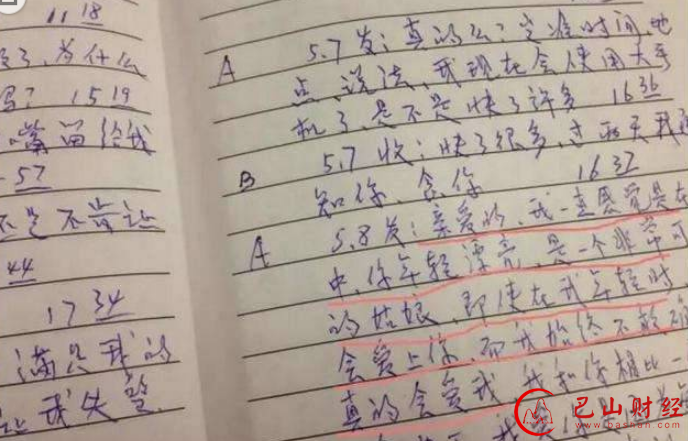 11 18
为什么
15 19
嘴留给我
57
不是不肯让
44
17 34
满足我的
让我失望
A 5.7发:真的么?定准时间、地
点、说法,我现在会使用大手
机了,是不是快了许多 16 36
B 5.7收:快了很多,过两天我
知你,念你 16 37
A 5.8发:亲爱的,我一直感觉是在
中,你年轻漂亮,是一个非常可
的姑娘,即使在我年轻时,
会爱上你,而我始终不能
真的会爱我,我和你相比一
巴山财经
www.bashan.com